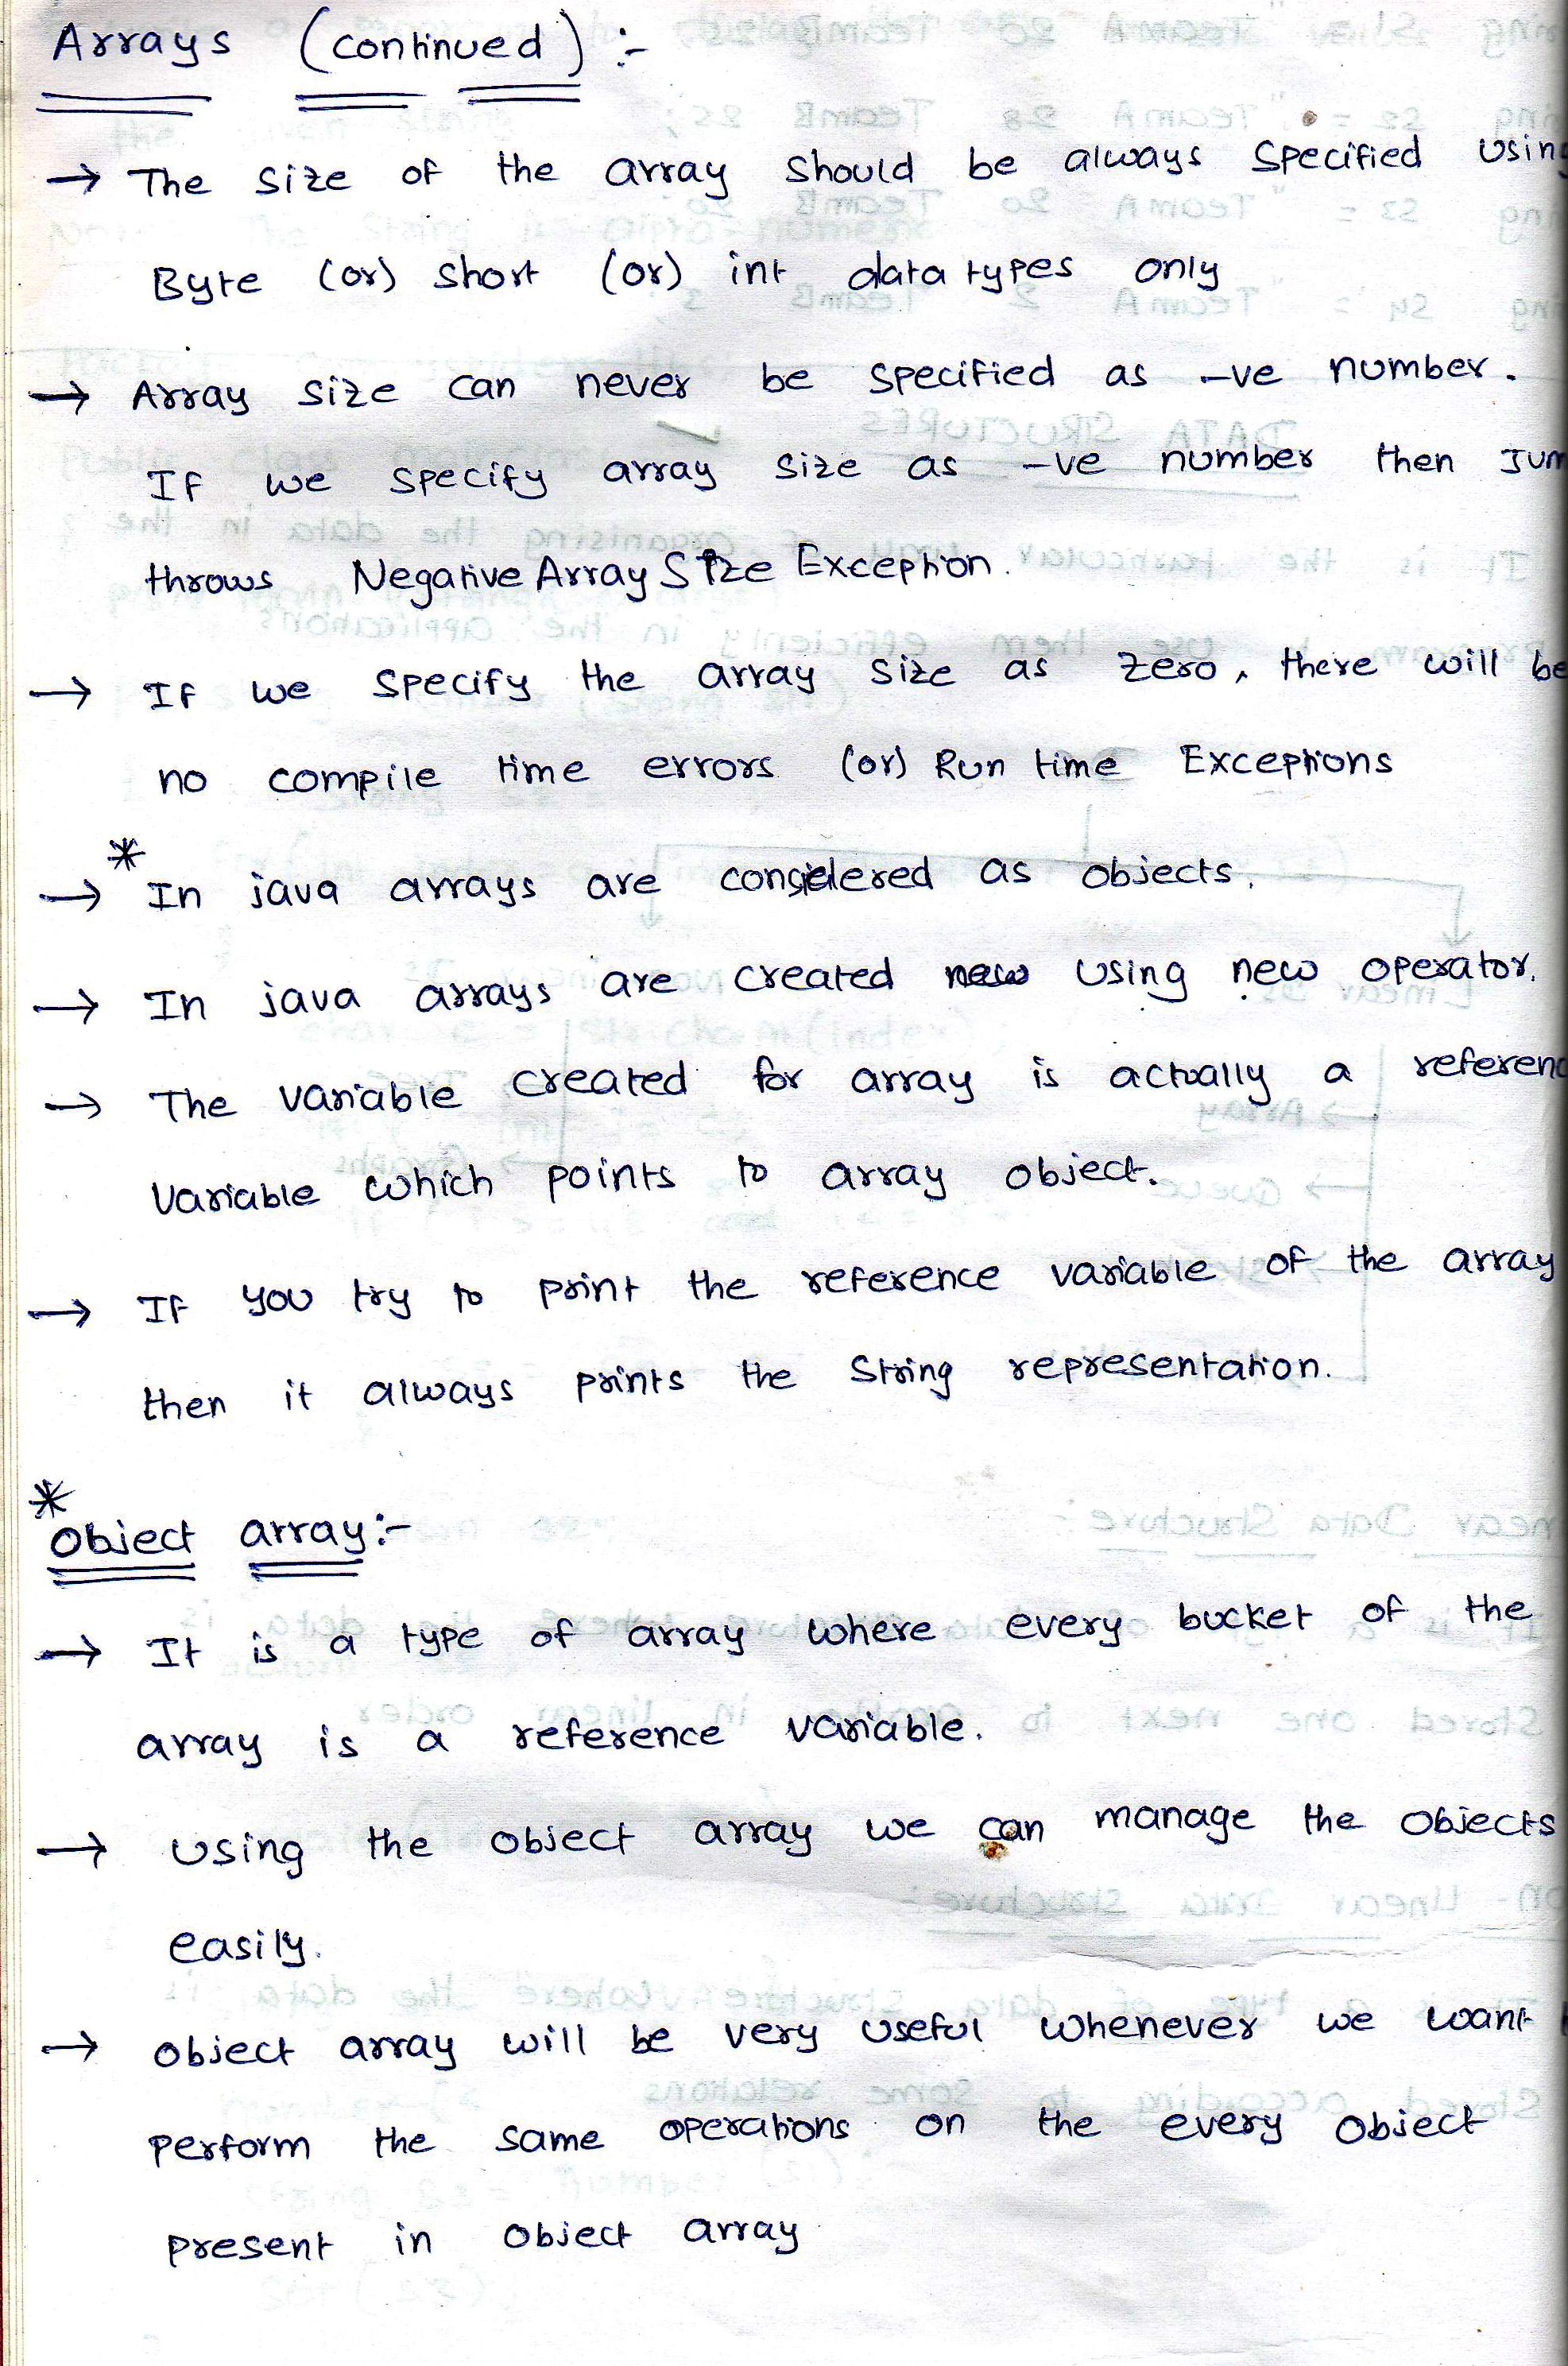 Arrays (continued) :-
→ The size of the array should be always specified using
Byte (or) short (or) int data types only
→ Array size can never be specified as -ve number.
If we specify array size as -ve number then
throws NegativeArraySizeException.
→ If we specify the array size as zero, there will be
no compile time errors (or) Run time Exceptions
* → In java arrays are considered as objects.
→ In java arrays are created using new operator.
→ The variable created for array is actually a referenc
variable which points to array object.
→ If you try to print the reference variable of the array
then it always prints the string representation.
* Object array:-
→ It is a type of array where every bucket of the
array is a reference variable.
→ using the object array we can manage the objects
easily.
→ object array will be very useful whenever we want
perform the same operations on the every object
present in object array